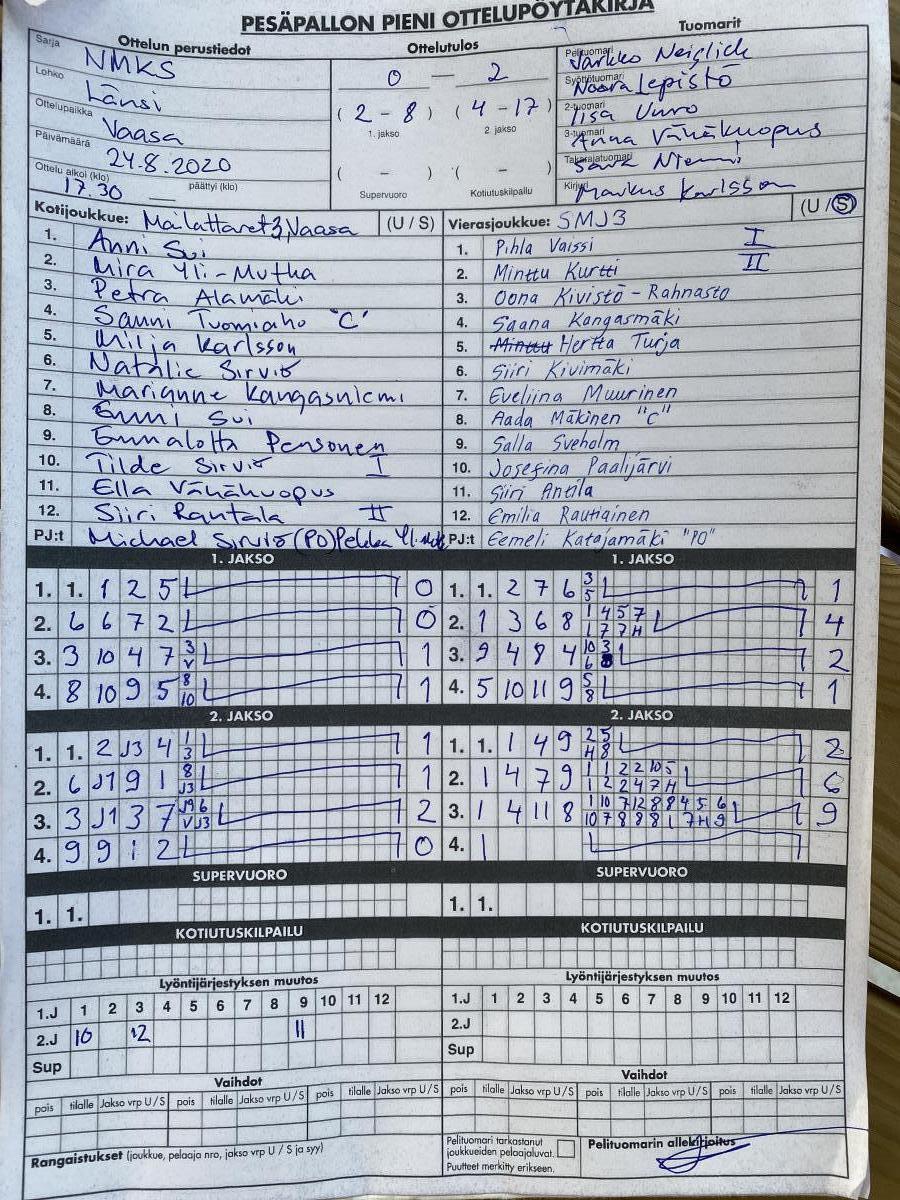 PESÄPALLON PIENI OTTELUPÖYTÄKIRJA
Ottelun perustiedot Ottelutulos Tuomarit
Sarja NMKS
Lohko Länsi
Ottelupaikka Vaasa
Päivämäärä 24.8.2020
Ottelu alkoi (klo) 17.30 päättyi (klo)
0 — 2
(2 - 8) (4 - 17)
1. jakso 2. jakso
( - ) ( - )
Supervuoro Kotiutuskilpailu
Pelituomari Jarkko Neiglick
Syöttötuomari Noora Lepistö
2-tuomari Iisa Uuro
3-tuomari Anna Vähäkuopus
Takarajatuomari Sara Niemi
Kirjuri Markus Karlsson
Kotijoukkue: Mailattaret3, Vaasa (U / S) Vierasjoukkue: SMJ3 (U / S)
1. Anni Sui 1. Pihla Vaissi I
2. Mira Yli-Mutka 2. Minttu Kurtti II
3. Petra Alamäki 3. Oona Kivistö-Rahnasto
4. Sanni Tuomiaho "C" 4. Saana Kangasmäki
5. Milja Karlsson 5. Minttu Hertta Turja
6. Natalie Sirviö 6. Siiri Kivimäki
7. Marianne Kangasniemi 7. Eveliina Muurinen
8. Enni Sui 8. Aada Mäkinen "C"
9. Emmalotta Pensonen 9. Salla Sveholm
10. Tilde Sirviö I 10. Josefina Paalijärvi
11. Ella Vähäkuopus 11. Siiri Antila
12. Siiri Rantala II 12. Emilia Rautiainen
PJ:t Michael Sirviö (PO) Pekka PJ:t Eemeli Katajamäki "PO"
1. JAKSO 1. JAKSO
1. 1. 1 2 5 0 1. 1. 2 7 6 3 5 1
2. 6 6 7 2 0 2. 1 3 6 8 1 4 5 7 1 7 7 H 4
3. 3 10 4 7 3 V 1 3. 9 4 8 4 10 3 6 8 2
4. 8 10 9 5 8 10 1 4. 5 10 11 9 5 8 1
2. JAKSO 2. JAKSO
1. 1. 2 J3 4 1 3 1 1. 1. 1 4 9 2 5 H 8 2
2. 6 J1 9 1 8 J3 1 2. 1 4 7 9 1 1 2 2 10 5 1 2 2 4 7 H 6
3. 3 J1 3 7 J9 6 V J3 2 3. 1 4 11 8 1 10 7 12 8 8 4 5 6 10 7 8 8 8 1 7 H 9 9
4. 9 9 1 2 0 4. 1
SUPERVUORO SUPERVUORO
1. 1. 1. 1.
KOTIUTUSKILPAILU KOTIUTUSKILPAILU
Lyöntijärjestyksen muutos Lyöntijärjestyksen muutos
1.J 1 2 3 4 5 6 7 8 9 10 11 12 1.J 1 2 3 4 5 6 7 8 9 10 11 12
2.J 10 12 11 2.J
Sup Sup
Vaihdot Vaihdot
pois tilalle Jakso vrp U / S pois tilalle Jakso vrp U / S pois tilalle Jakso vrp U / S pois tilalle Jakso vrp U / S pois tilalle Jakso vrp U / S pois tilalle Jakso vrp U / S
Rangaistukset (joukkue, pelaaja nro, jakso vrp U / S ja syy)
Pelituomari tarkastanut
joukkueiden pelaajaluvat.
Puutteet merkitty erikseen.
Pelituomarin allekirjoitus